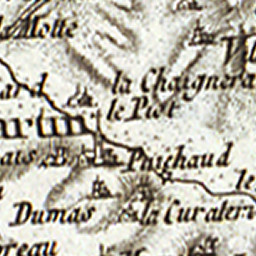 la Motte
Vil
ard
la Chaignera
le Piot
artin
ais B
Puichaud
le
Dumas
la Curateri
reau